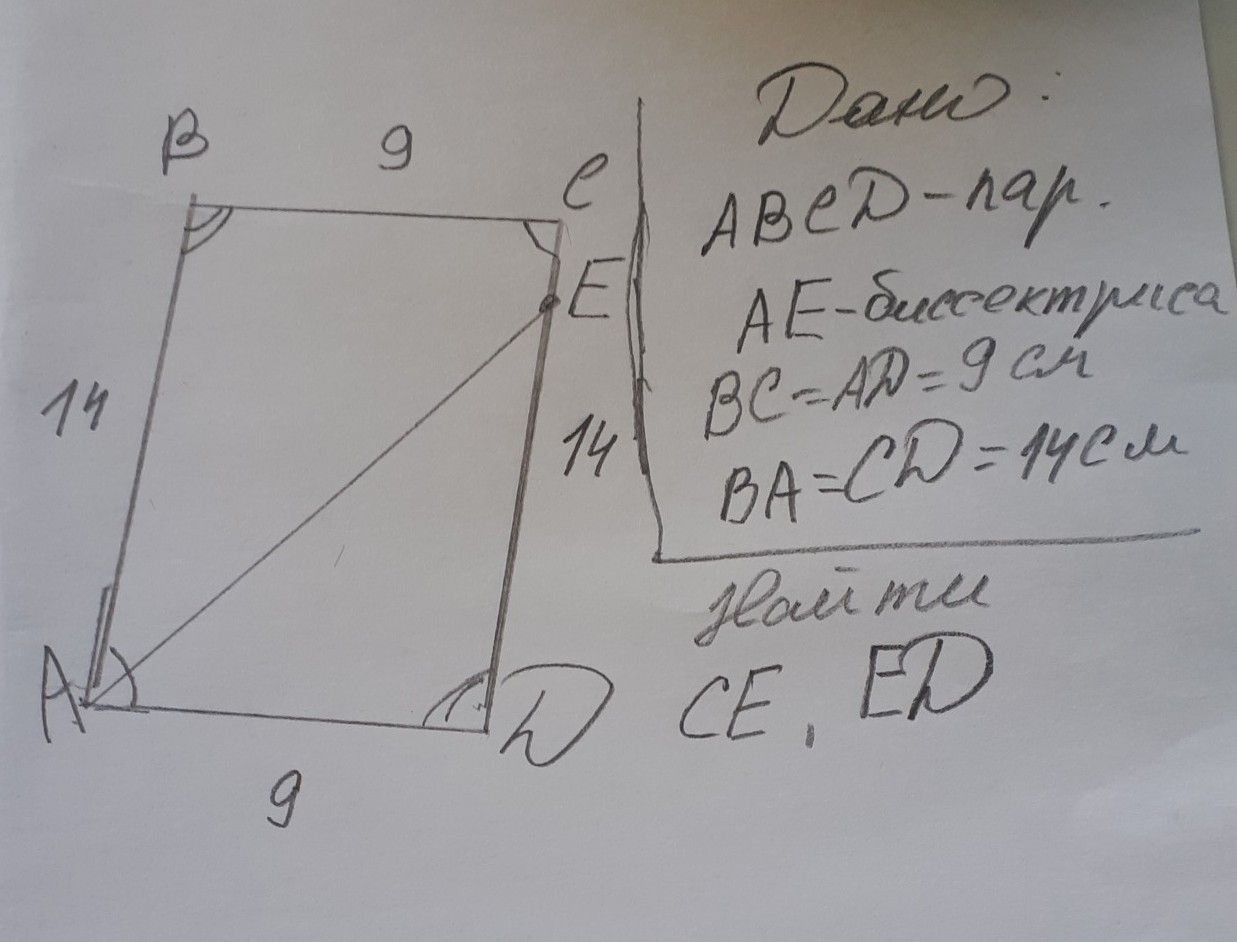 B 9 C
E
14
14
A
D
9
Дано:
ABCD-пар.
AE-биссектриса
BC=AD=9 см
BA=CD=14 см
Найти
CE, ED